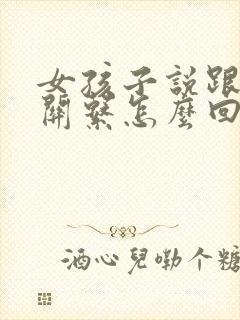 女孩子說跟
關繫怎麼回
酒心兒嘞个糖